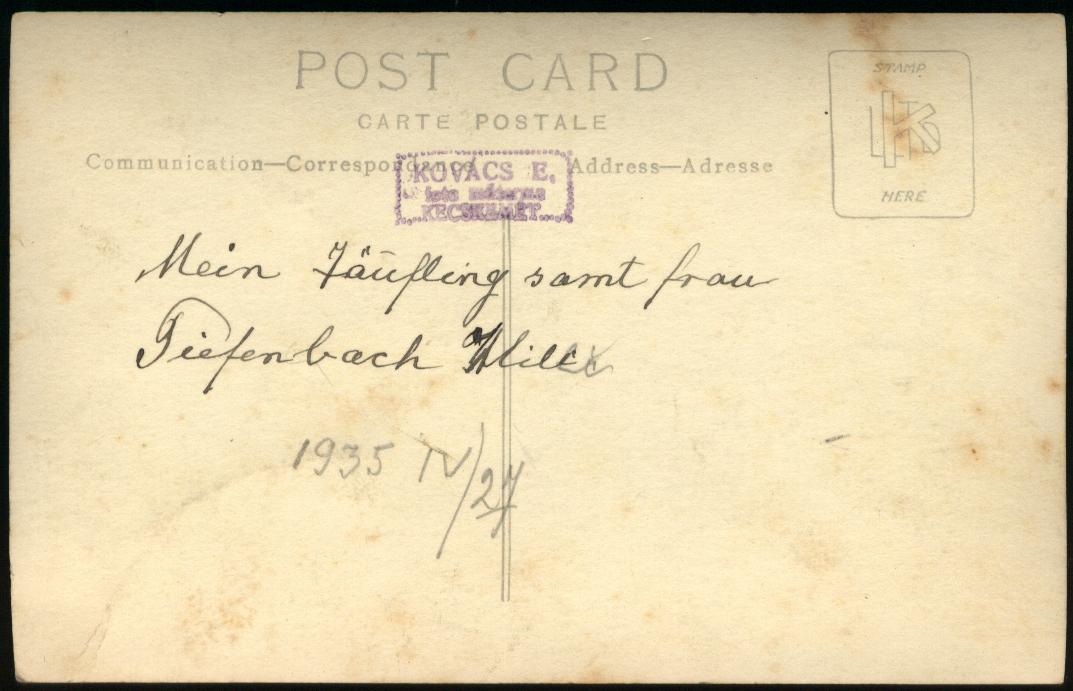 POST CARD
CARTE POSTALE
Communication—Correspondance Address—Adresse
STAMP
HERE
KOVÁCS E.
foto műterme
KECSKEMÉT
Mein Täufling samt frau
Tiefenbach
1935 IV/27